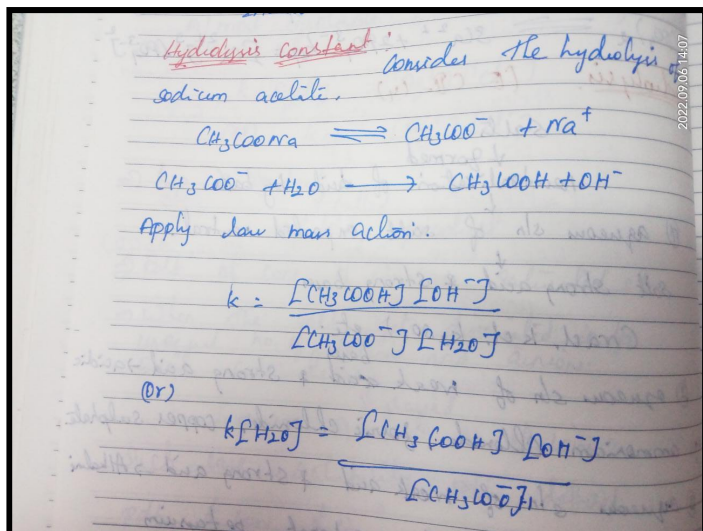 Hydrolysis constant :
Consider the hydrolysis of
sodium acetate.
CH3COONa ⇌ CH3COO⁻ + Na⁺
CH3COO⁻ + H2O ⟶ CH3COOH + OH⁻
Apply law mass action.
k = [CH3COOH] [OH⁻]
[CH3COO⁻] [H2O]
(Or)
k[H2O] = [CH3COOH] [OH⁻]
[CH3COO⁻]
2022.09.06 14:07